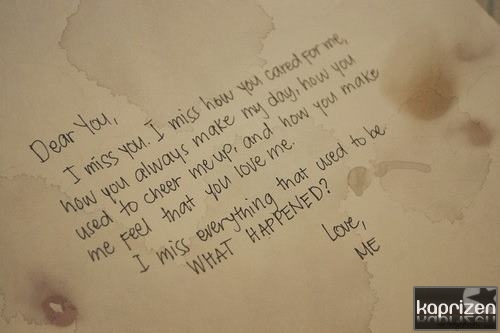 Dear You,
I miss you. I miss how you cared for me,
how you always make my day, how you
used to cheer me up, and how you make
me feel that you love me.
I miss everything that used to be.
WHAT HAPPENED?
Love,
ME
kaprizen